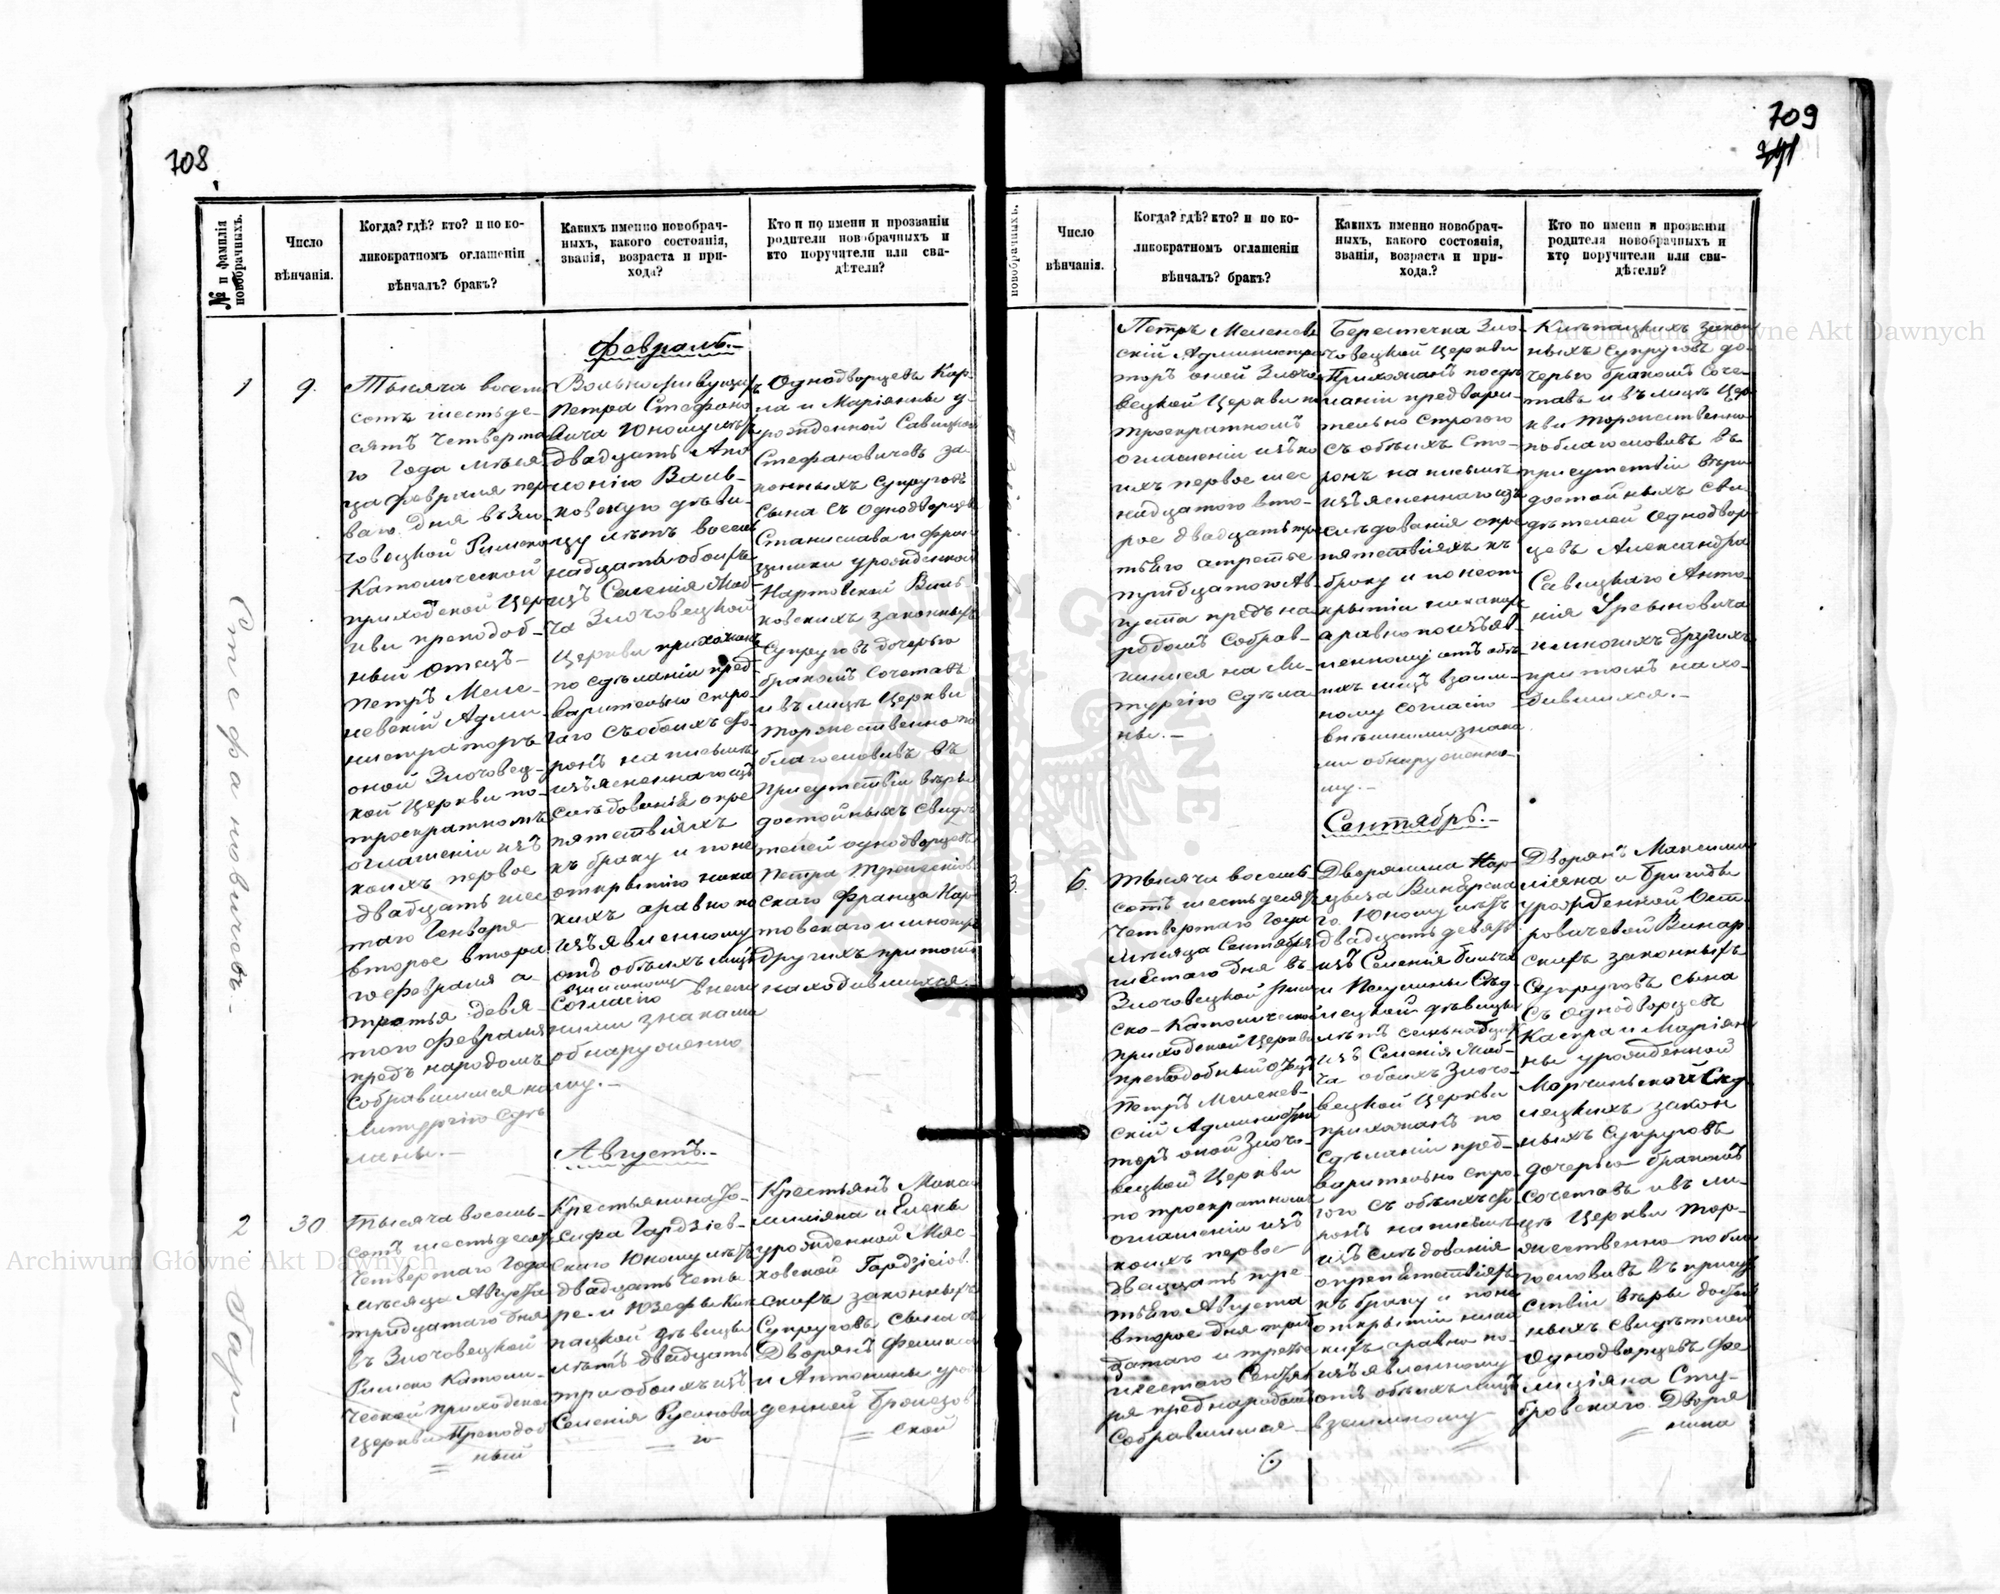 708
№ и фамилія новобрачныхъ.
Число
вѣнчанія.
Когда? гдѣ? кто? и по ко-
ликократномъ оглашеніи
вѣнчалъ? бракъ?
Какихъ именно новобрач-
ныхъ, какого состоянія,
званія, возраста и при-
хода?
Кто и по имени и прозванію
родители новобрачныхъ и
кто поручители или сви-
дѣтели?
Стефановичов.
Гар-
1
9.
Тысяча восем
сотъ шестьде-
сятъ четверта
го Года мѣся
ца февраля
ваго дня въ Зло
човецкой Римско
Католической
приходской Цер
кви преподоб-
ный отецъ
Петръ Меле-
невскій Адми
нистраторъ
оной Злочовец-
кой Церкви по
троекратномъ
оглашеніи изъ
коихъ первое
двадцать шес
таго Генваря
второе втора
го февраля а
третья девя-
того февраля
предъ народомъ
собравшимся на
Литургію сдѣ
ланы.-
Февраль.-
Вольноживущаго
Петра Стефано
вича Юношу лѣтъ
двадцать Апо
лонію Валь-
ковскую дѣви-
цу лѣтъ восем
надцать обоихъ
изъ Селенія
Злочовецкой
Церкви прихожанъ
по сдѣланіи пред
варительно стро
гаго съ обоихъ сто
ронъ на письмѣ
изъясненнаго изъ
слѣдованія о пре
пятствіяхъ
къ браку и по не
открытію ника
кихъ а равно по
изъявленному
отъ обѣихъ лицъ
взаимному
согласію внеш
ними знаками
обнаруженно
му.-
Однодворцевъ Кар
па и Маріянны у-
рожденной Савицкой
Стефановичовъ за
конныхъ супруговъ
сына съ Однодворцевъ
Станислава и Фран
цишки урожденной
Нартовской Валь
ковскихъ законныхъ
супруговъ дочерью
бракомъ сочеталъ
и въ лицѣ Церкви
торжественно по
благословивъ въ
присутствіи вѣры
достойныхъ свидѣ
телей однодворцевъ
Петра
скаго Франца Нар
товскаго и многихъ
другихъ при томъ
находившихся.
2
30
Тысяча восемь-
сотъ шестьдесятъ
четвертаго Года
мѣсяца Августа
тридцатаго дня
въ Злочовецкой
Римско Католи-
ческой приходской
Церкви Преподоб
ный
Августъ.-
Крестьянина Іо-
сифа Гардзіев-
скаго Юношу лѣтъ
двадцать четы
ре и Юзефы Кле
пацкой дѣвицы
лѣтъ двадцать
три обоихъ изъ
Селенія Русанова
го
Крестьянъ Макси
миліяна и Елены
урожденной Мяс-
ковской Гардзіев
скихъ законныхъ
Супруговъ сына съ
Дворянъ Феликса
и Антонины урож
денной
ской
709
новобрачныхъ.
Число
вѣнчанія.
Когда? гдѣ? кто? и по ко-
ликократномъ оглашеніи
вѣнчалъ? бракъ?
Какихъ именно новобрач-
ныхъ, какого состоянія,
званія, возраста и при-
хода.?
Кто по имени и прозванію
родителя новобрачныхъ и
кто поручители или сви-
дѣтели?
Петръ Меленев
скій Администра
торъ оной Злочо
вецкой Церкви по
троекратномъ
оглашеніи изъ ко
ихъ первое шес
надцатого вто-
рое двадцать тре
тьяго а третье
тридцатого Ав
густа предъ на
родомъ собрав-
шимся на Ли-
тургію сдѣла
ны.-
Берестечка Зло-
човецкой Церкви
Прихожанъ по сдѣ
ланіи предвари-
тельно строгого
съ обѣихъ сто-
ронъ на письмѣ
изъясненнаго изъ
слѣдованія о пре
пятствіяхъ къ
браку и по неот
крытіи никакихъ
а равно по изъяв-
ленному отъ обѣ
ихъ лицъ взаим-
ному согласію
внѣшними знака
ми обнаруженно
му.-
Клепацкихъ закон
ныхъ супруговъ до-
черью бракомъ соче-
талъ и въ лицѣ Цер
кви торжественно
поблагословивъ въ
присутствіи вѣры
достойныхъ сви-
дѣтелей Однодвор
цевъ Александра
Савицкаго Анто-
нія
и многихъ другихъ
при томъ нахо-
дившихся.-
3.
6.
Тысяча восемь
сотъ шестьдесятъ
четвертаго Года
Мѣсяца Сентября
шестаго дня въ
Злочовецкой Рим
ско-Католической
приходской Церкви
преподобный Отецъ
Петръ Меленев-
скій Администра
торъ оной Злочо-
вецкой Церкви
по троекратномъ
оглашеніи изъ
коихъ первое
двадцать тре
тьяго Августа
второе дня три
дцатаго и третье
шестого Сентяб
ря пред народомъ
собравшимся
Сентябрь.-
Дворянина
Винарска
го Юношу лѣтъ
двадцать девять
изъ Селенія
и Паулины Сѣд-
лецкой дѣвицы
лѣтъ семьнадцать
изъ Селенія
обоихъ Злочо-
вецкой Церкви
прихожанъ по
сдѣланіи пред-
варительно стро
гого съ обѣихъ сто
ронъ на письмѣ
изъ слѣдованія
о препятствіяхъ
къ браку и по не
открытіи ника
кихъ а равно по-
изъявленному
отъ обѣихъ лицъ
взаимному
Дворянъ Максими
ліяна и Бригиды
урожденной Ост-
ровичевой Винар-
скихъ законныхъ
Супруговъ сына
съ Однодворцевъ
Каспра и Маріян
ны урожденной
Сѣд
лецкихъ закон
ныхъ Супруговъ
дочерью бракомъ
сочеталъ и въ ли-
цѣ Церкви тор-
жественно побла
гословивъ въ присут
ствіи вѣры достой
ныхъ свидѣтелей
Однодворцевъ Фе
лиціяна Сту-
бровскаго Дворя
нина
Archiwum Główne Akt Dawnych
Archiwum Główne Akt Dawnych